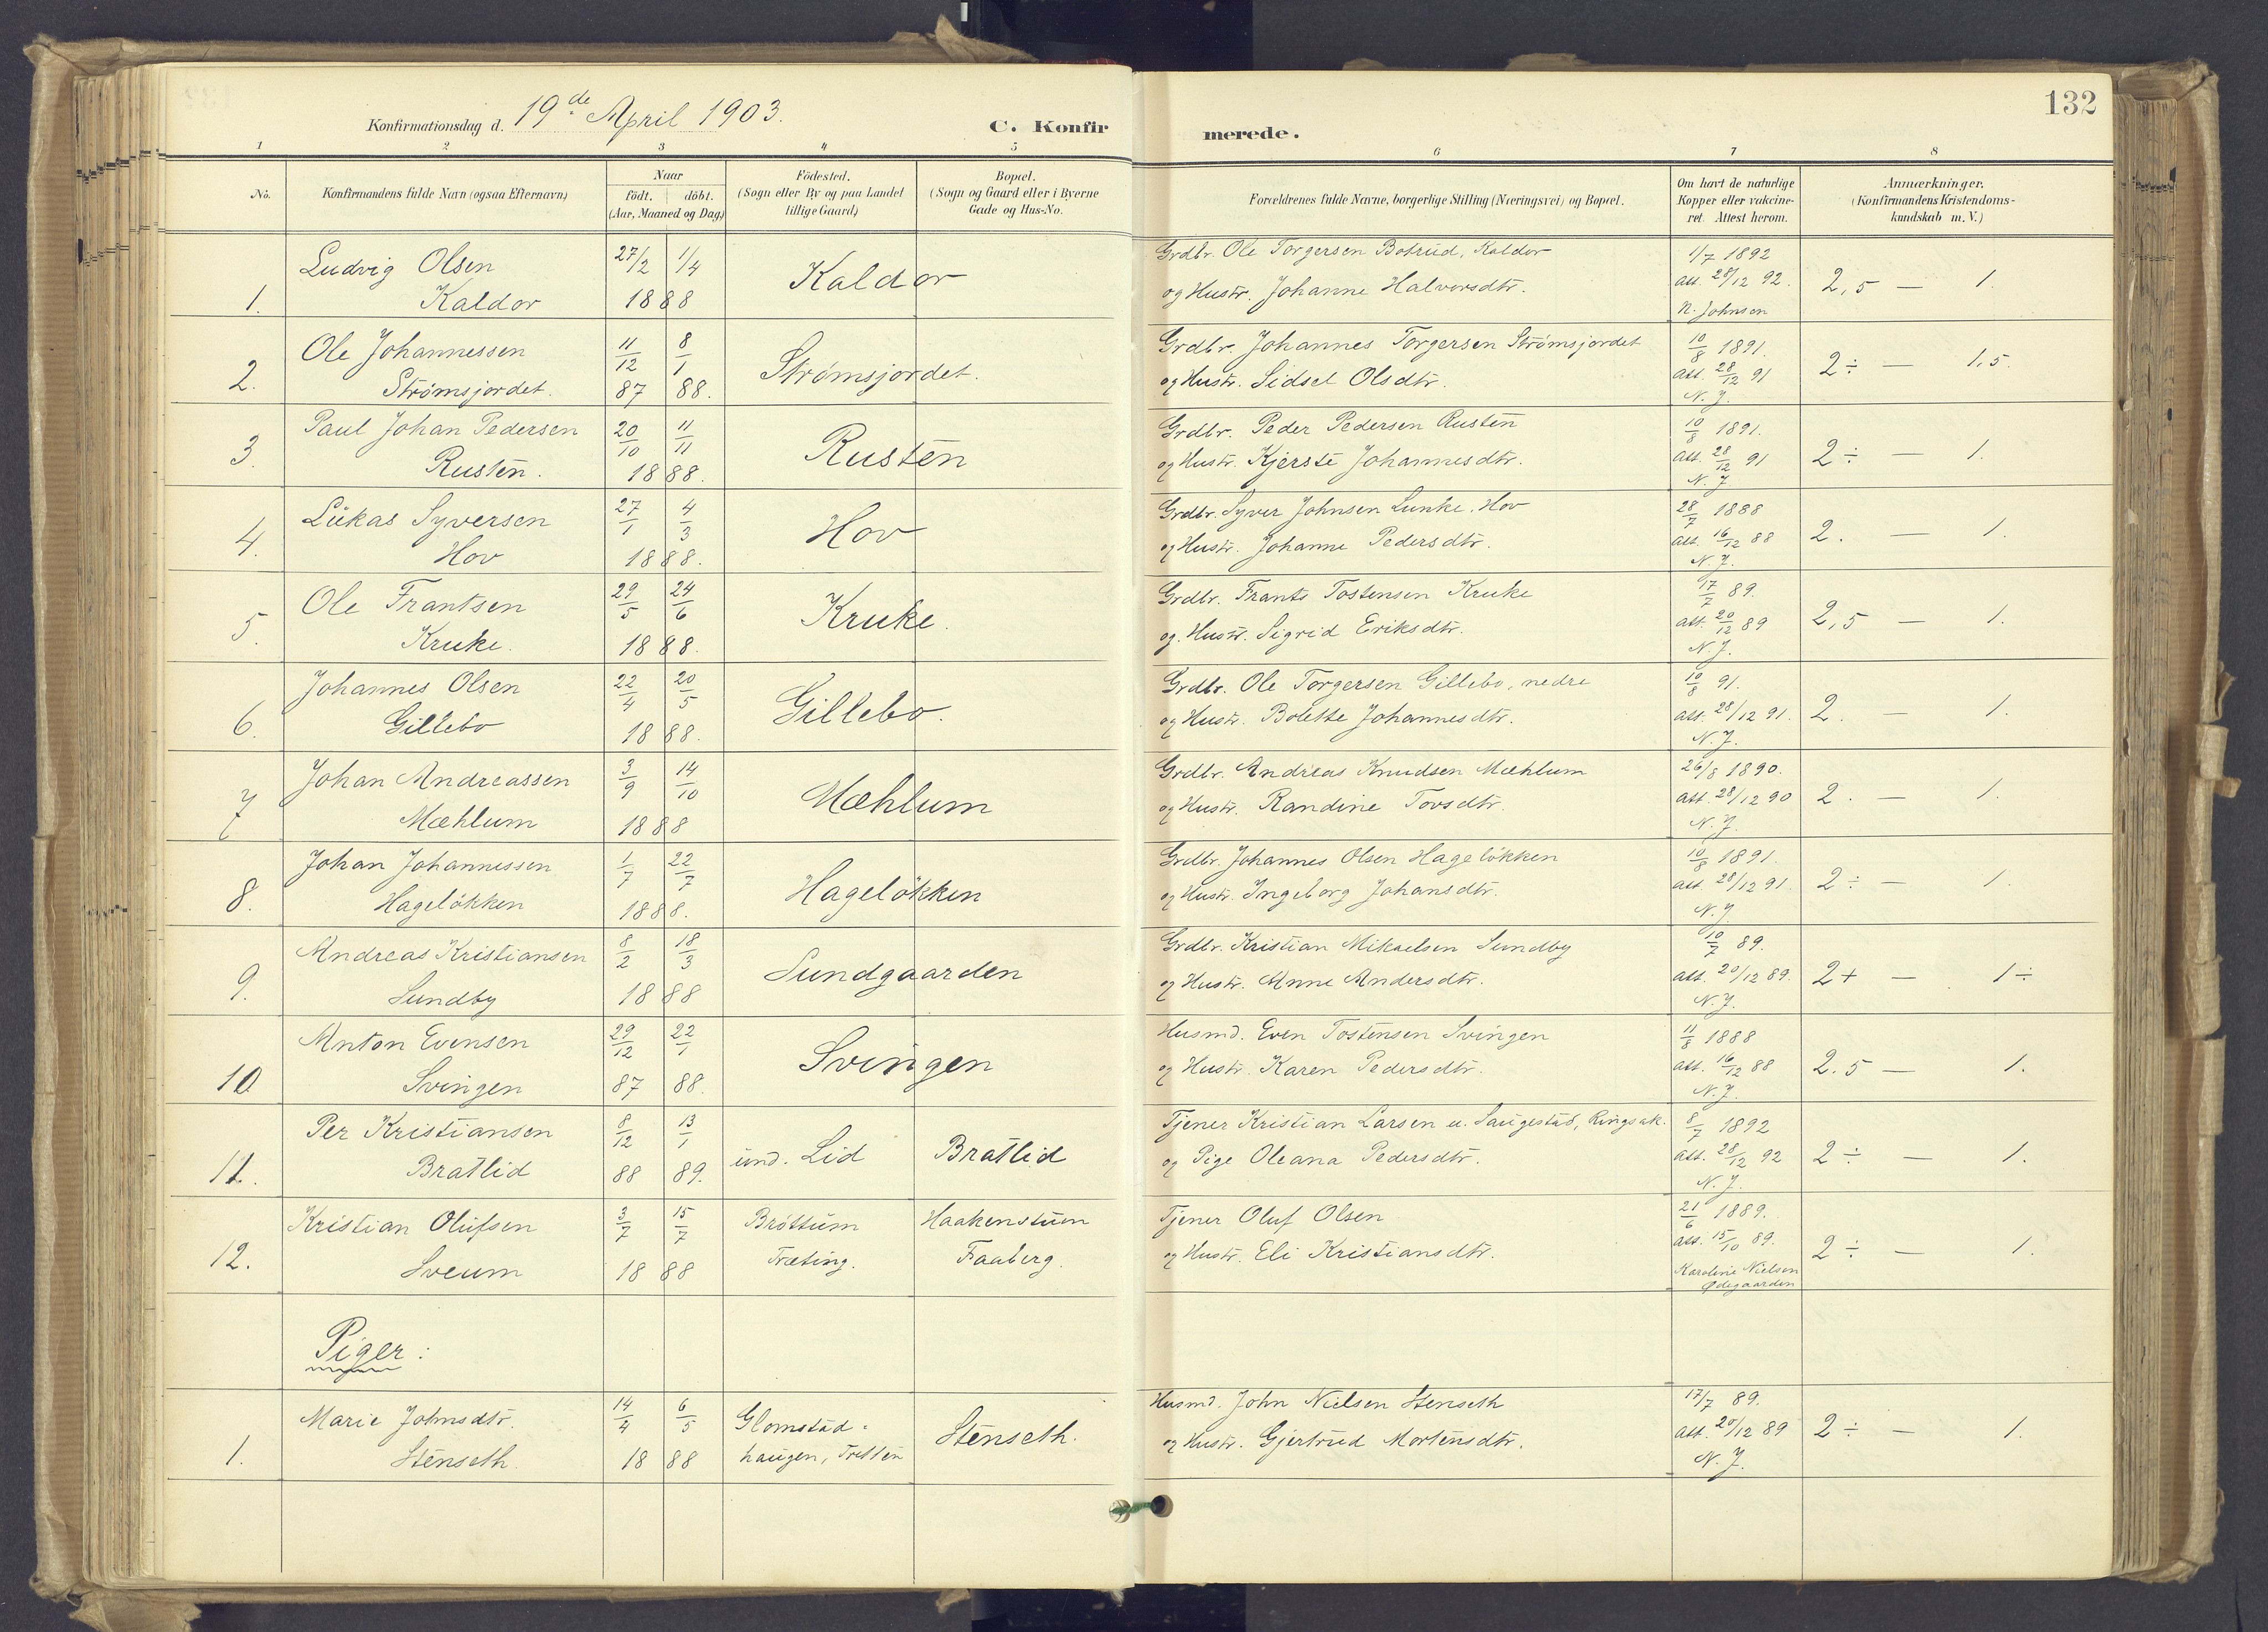 132
Konfirmationsdag d. 19de April 1903.
C. Konfirmerede.
1 2 3 4 5 6 7 8
No.
Konfirmandens fulde Navn (ogsaa Efternavn)
Naar
födt. döbt.
(Aar, Maaned og Dag)
Födested.
(Sogn eller By og paa Landet
tillige Gaard)
Bopæl.
(Sogn og Gaard eller i Byerne
Gade og Hus-No.
Forældrenes fulde Navne, borgerlige Stilling (Næringsvei) og Bopæl.
Om havt de naturlige
Kopper eller vakcine-
ret. Attest herom.
Anmærkninger.
(Konfirmandens Kristendoms-
kundskab m. V.)
Ludvig Olsen 27/2 1/4 Kaldor Grdbr. Ole Torgersen Botrud, Kaldor 1/7 1892
1. Kaldor 1888 og Hustr. Johanne Halvorsdtr. att. 28/12 92. 2,5 — 1.
N. Johnsen
Ole Johannessen 11/12 8/1 Strømsjordet. Grdbr. Johannes Torgersen Strømsjordet 10/8 1891.
2. Strømsjordet. 87 88. og Hustr. Sidsel Olsdtr. att. 28/12 91 2÷ — 1,5.
N. J.
Paul Johan Pedersen 20/10 11/11 Rusten Grdbr. Peder Pedersen Rusten 10/8 1891.
3. Rusten. 1888. og Hustr. Kjersti Johannesdtr. att. 28/12 91 2÷ — 1.
N. J
Lukas Syversen 27/1 4/3 Hov Grdbr. Syver Johnsen Lunke, Hov 28/7 1888
4. Hov 1888. og Hustr. Johanne Pedersdtr. att. 16/12 88 2. — 1.
N. J.
Ole Frantsen 29/5 24/6 Kruke. Grdbr. Frants Tostensen Kruke 17/7 89.
5. Kruke. 1888. og. Hustr. Sigrid Eriksdtr. att. 20/12 89 2,5 — 1.
N. J.
Johannes Olsen 22/4 20/5 Gillebo. Grdbr. Ole Torgersen Gillebo, nedre 10/8 91.
6. Gillebo 1888. og Hustr. Bolette Johannesdtr. att. 28/12 91. 2. — 1.
N. J.
Johan Andreassen 3/9 14/10 Mæhlum Grdbr. Andreas Knudsen Mæhlum 26/8 1890.
7 Mæhlum 1888 og Hustr. Randine Tovsdtr. att. 28/12 90 2. — 1.
N. J.
Johan Johannessen 1/7 22/7 Hageløkken Grdbr. Johannes Olsen Hageløkken 10/8 1891.
8. Hageløkken 1888. og Hustr. Ingeborg Johansdtr. att. 28/12 91. 2÷ — 1.
N. J
Andreas Kristiansen 8/2 18/3 Sundgaarden Grdbr. Kristian Mikaelsen Sundby 10/7 89.
9. Sundby 1888 og Hustr. Anne Andersdtr. att. 20/12 89. 2+ — 1÷
N. J.
Anton Evensen 29/12 22/1 Svingen Husmd. Even Tostensen Svingen 11/8 1888
10 Svingen 87 88. og Hustr. Karen Pedersdtr. att. 16/12 88 2.5 — 1.
N. J.
Per Kristiansen 8/12 13/1 und. Lid Bratlid Tjener Kristian Larsen u. Saugestad, Ringsak. 8/7 1892
11. Bratlid 88 89. og Pige Oleana Pedersdtr. att. 28/12 92 2÷ — 1.
N. J.
Kristian Olufsen 3/7 15/7 Brøttum Haakenstuen Tjener Oluf Olsen 21/6 1889.
12. Sveum 1888 Træting. Faaberg. og Hustr. Eli Kristiansdtr. att. 15/10 89. 2÷ — 1.
Karoline Nielsen
Ødegaarden
Piger:
Marie Johnsdtr. 14/4 6/5 Glomstad- Stenseth. Husmd. John Nielsen Stenseth 17/7 89.
1. Stenseth. 1888 haugen, Tretten og Hustr. Gjertrud Mortensdtr. att. 20/12 89 2÷ — 1.
N. J.